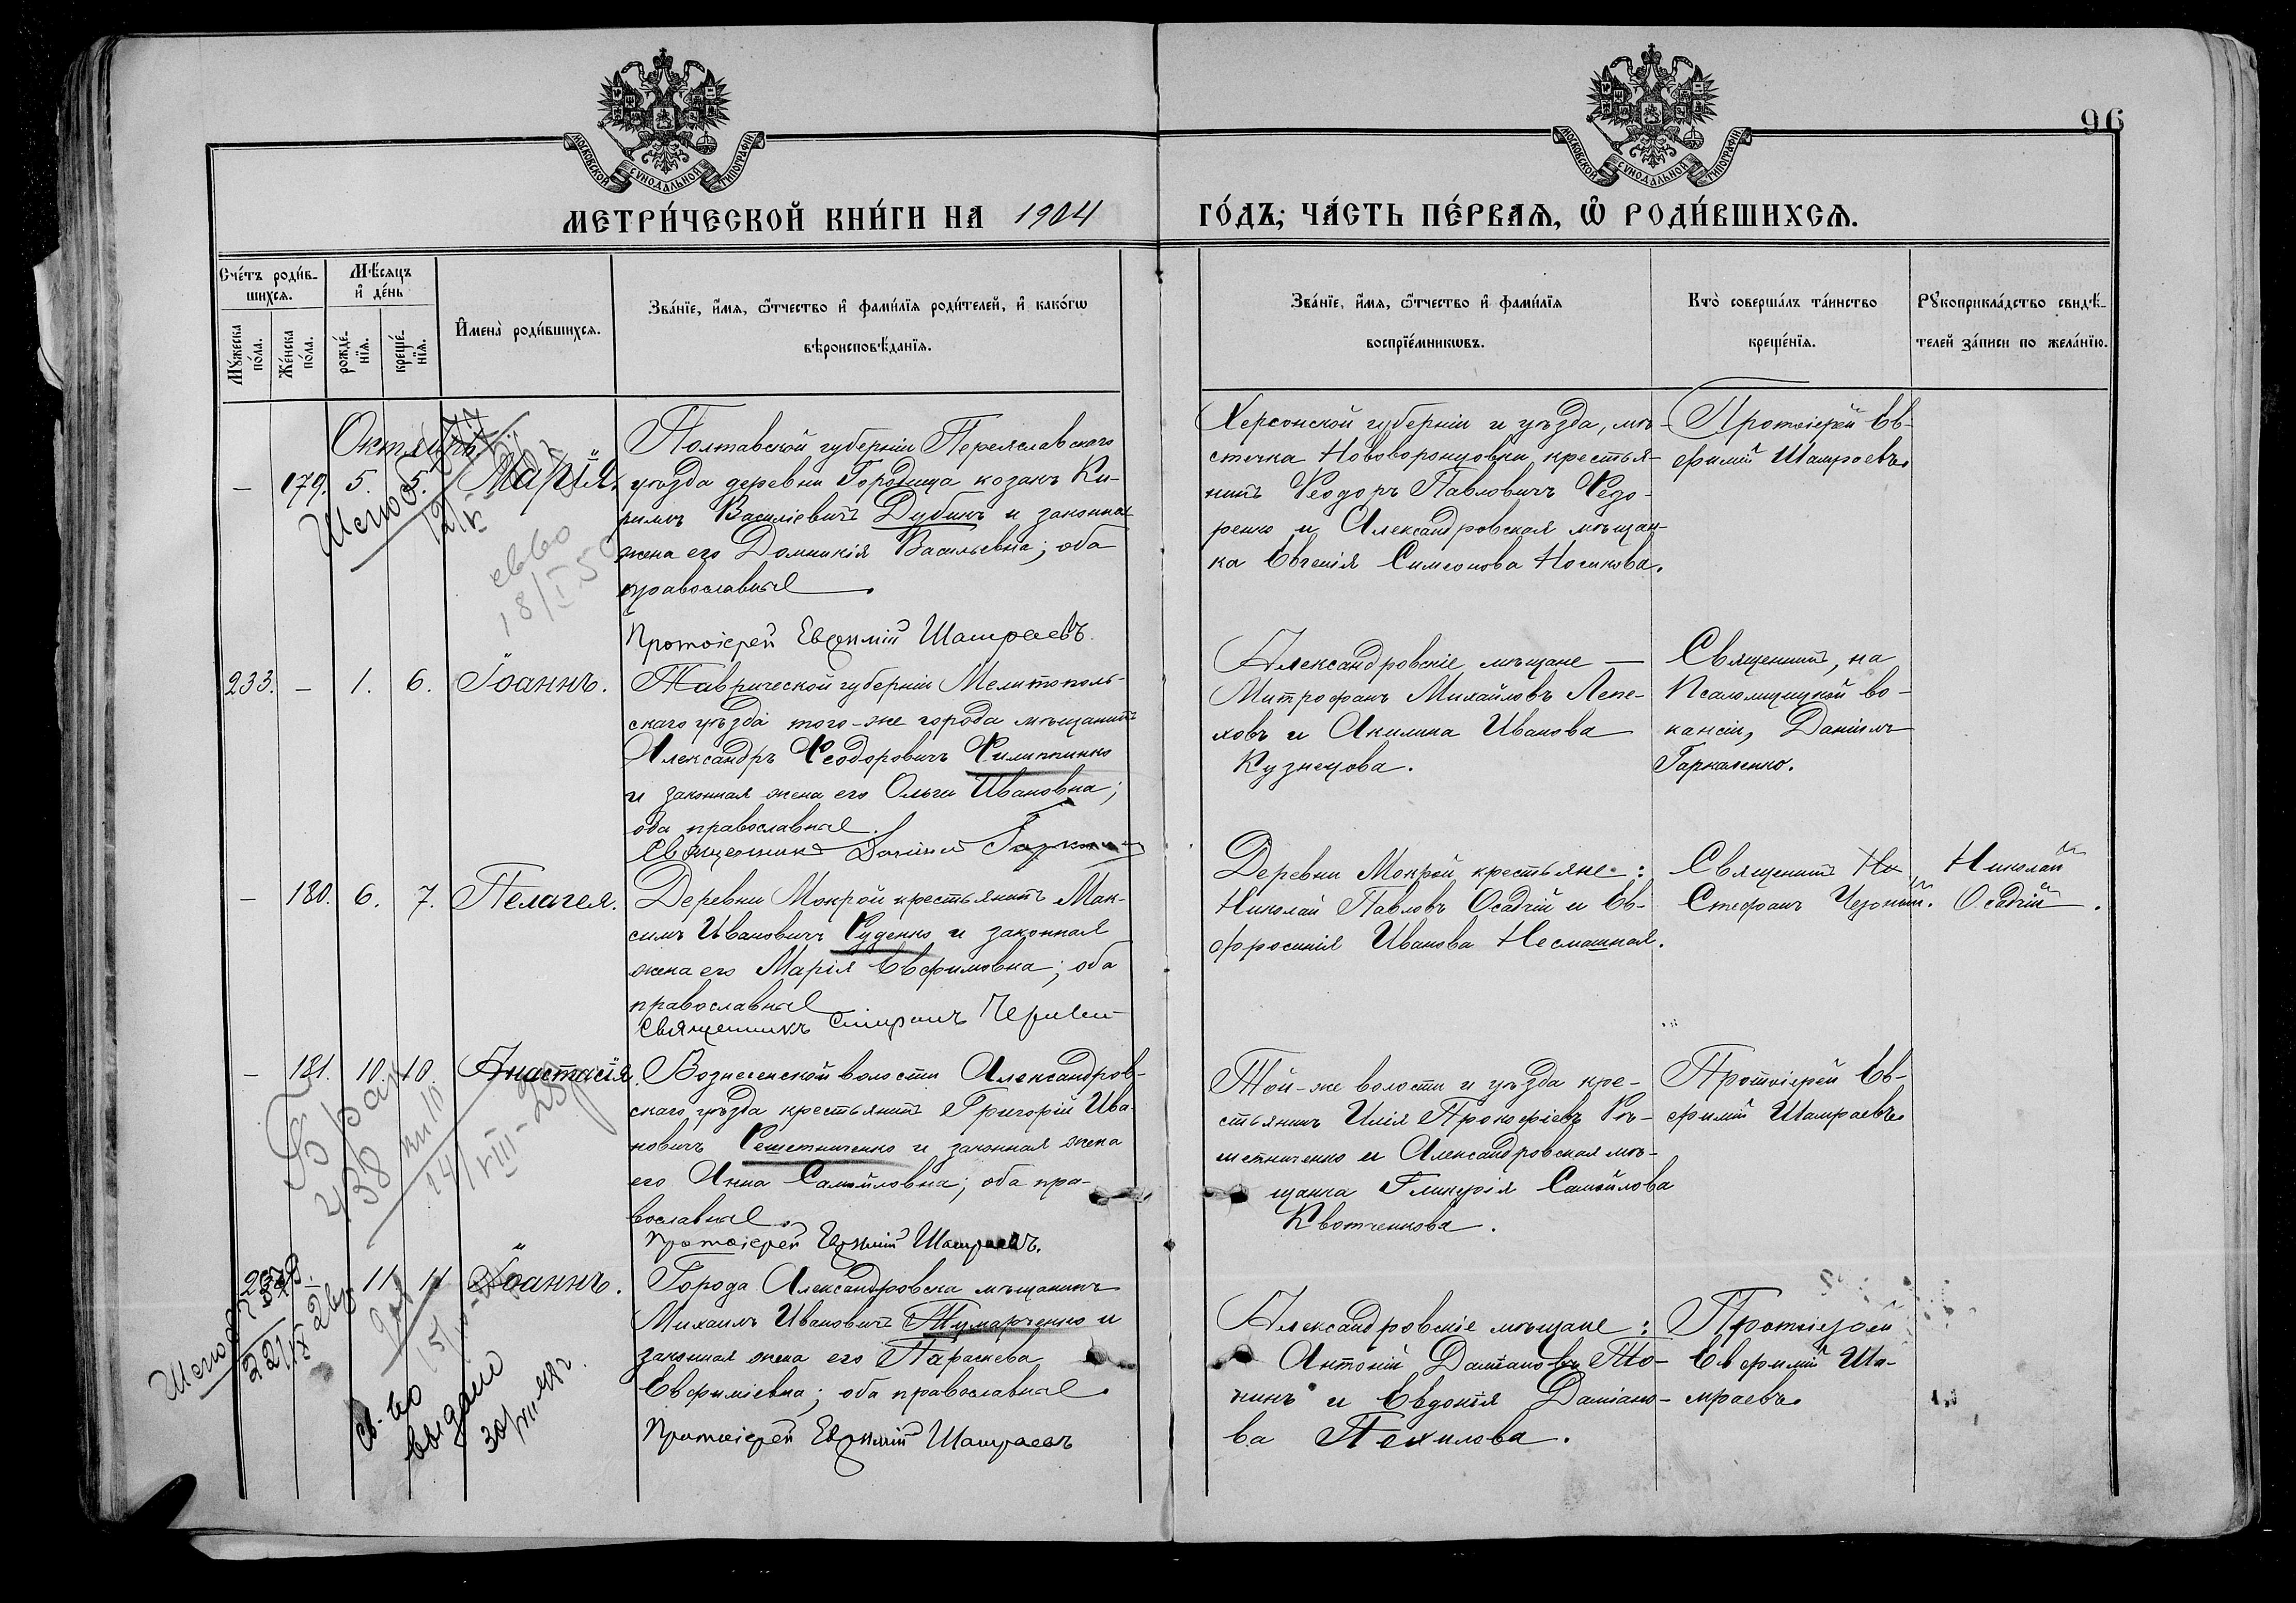 96
МОСКОВСКОЙ СУНОДАЛЬНОЙ ТИПОГРАФІИ
МОСКОВСКОЙ СУНОДАЛЬНОЙ ТИПОГРАФІИ
МЕТРИ́ЧЕСКОЙ КНИ́ГИ НА 1904
ГО́ДЪ; ЧА́СТЬ ПЕ́РВАЯ, Ѡ҆ РОДИ́ВШИХСЯ.
Сче́тъ роди́в-
шихся.
Мꙋ́жеска по́ла.
Же́нска по́ла.
Мѣ́сяцъ
и҆ де́нь
рожде́-
нїя.
креще́-
нїя.
И҆мена̀ роди́вшихся.
Зва́нїе, и҆́мя, ѻ҆́тчество и҆ фами́лїя роди́телей, и҆ како́гѡ
вѣроисповѣ́данїя.
Зва́нїе, и҆́мя, ѻ҆́тчество и҆ фами́лїя
воспрїе́мникѡвъ.
Кто̀ соверша́лъ та́инство
креще́нїя.
Рꙋкоприкла́дство свидѣ́-
телей за́писи по жела́нїю.
Октябрь
— 179. 5. 5. Марія.
Полтавской губерніи Переяславскаго
уѣзда деревни Городища козакъ Ки-
риллъ Василіевичъ Дубина и законная
жена его Домникія Васильевна; оба
православные.
Протоіерей Евѳимій Шамраевъ.
Херсонской губерніи и уѣзда, мѣ-
стечка Нововоронцовки крестья-
нинъ Ѳеодоръ Павловичъ Ѳедо-
ренко и Александровская мѣщан-
ка Евгенія Симеонова Носикова.
Протоіерей Ев-
фимій Шамраевъ.
свво
18/I 50
233. — 1. 6. Іоаннъ.
Таврической губерніи Мелитополь-
скаго уѣзда того-же города мѣщанинъ
Александръ Ѳеодоровичъ Филиппенко
и законная жена его Ольга Ивановна;
оба православные.
Священникъ Даніилъ
Александровскіе мѣщане —
Митрофанъ Михайловъ Лепе-
ховъ и Акилина Иванова
Кузнецова.
Священникъ, на
Псаломщицкой ва-
кансіи, Даніилъ
Гаркаленко.
— 180. 6. 7. Пелагея.
Деревни Мокрой крестьянинъ Мак-
симъ Ивановичъ Руденко и законная
жена его Марія Евфимовна; оба
православные
Священникъ Стефанъ
Деревни Мокрой крестьяне:
Николай Павловъ Осадчій и Ев-
фросинія Иванова Несмашная.
Священникъ
Стефанъ
Николай
Осадчій.
— 181. 10. 10. Анастасія.
Вознесенской волости Александров-
скаго уѣзда крестьянинъ Григорій Ива-
новичъ Решетниченко и законная жена
его Анна Самойловна; оба пра-
вославные.
Протоіерей Евѳимій Шамраевъ.
Той-же волости и уѣзда кре-
стьянинъ Илія Прокофіевъ Рѣ-
шетниченко и Александровская мѣ-
щанка Гликерія Самойлова
Квотченкова.
Протоіерей Ев-
фимій Шамраевъ.
Брак
438
— 11. 11. Іоаннъ.
Города Александровска мѣщанинъ
Михаилъ Ивановичъ Тумарченко и
законная жена его Параскева
Евфиміевна; оба православные.
Протоіерей Евѳимій Шамраевъ
Александровскіе мѣщане:
Антоній Даміановъ То-
нинъ и Евдокія Даміано-
ва Пехилова.
Протоіерей
Евфимій Ша-
мраевъ.
св-во
выдано
30/VII-48г.